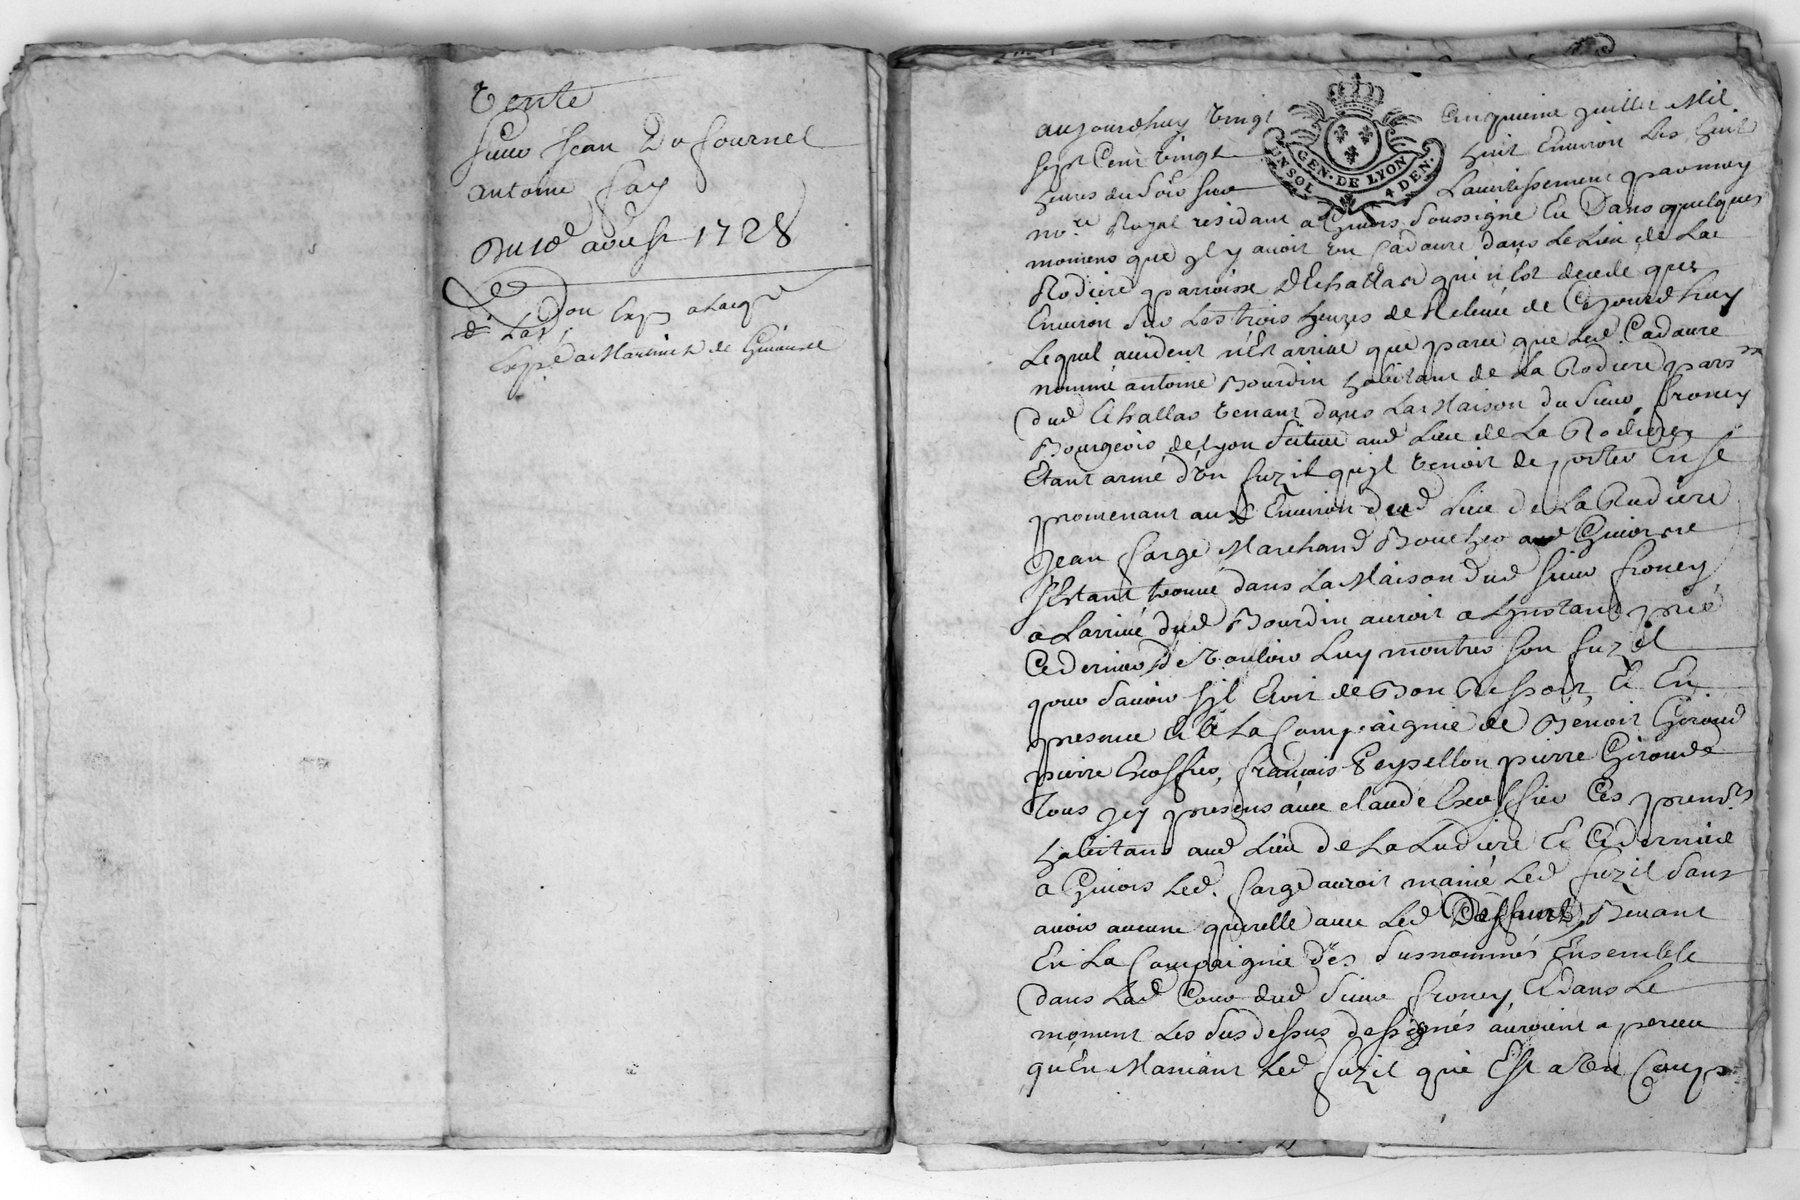 Vente
Sieur Jean Dufournel
antoine fay
Du 10e aoust 1728
Don Exp a
Exp.
aujourdhuy vingt cinquieme juillet Mil
sept Cent vingt huit Environ Les huit
heures du soir sur Lavertissement parmoy
no.re Royal residant a Givors soussigné Eu Dans quelques
momens que jl y avoit un Cadavre dans Le Lieu de La
Rodiere parroisse dEchallas qui nEst decedé que
Environ sur Les trois heures de Relevée de Cejourdhuy
Lequel accident nEst arrivé que parce que Led. Cadavre
nommé antoine Bourdin habitant de La Rodiere parr.sse
dud Echallas venant dans La Maison du sieur froney
Bourgeois de lyon situee aud Lieu de La Rodiere
Etant armé d'un fuzil qujl venoit de porter En se
promenant aux Environ dud Lieu de La Rudiere
Jean farge Marchand Boucher aud Givors
sEstant trouvé dans La Maison dud sieur froney
a Larrivé dud Bourdin auroit a Lynstand prié
Ce dernier de vouloir Luy montrer son fuzil
pour savoir sjl Etoit de Bon Ressort, Et En
presence Et de La Compaignie de Benoit Giroud
pierre Escoffier, francois peypellon pierre Giroud
tous jcy presens avec claude Escoffier Ces prem.rs
habitans aud Lieu de La Ludiere Et Ce dernier
a Givors Led. farge auroit manié Led fuzil sans
avoir aucune querelle avec Led Deffunt, Beuvant
En La Compaignie des susnommés Ensemble
dans Lad Cour dud sieur froney, Et dans Le
moment Les susdessus dessignés auroient aperceu
qu'En Maniant Led fuzil qui Est a un Coup
GEN. DE LYON
EN SOL 4 DEN.